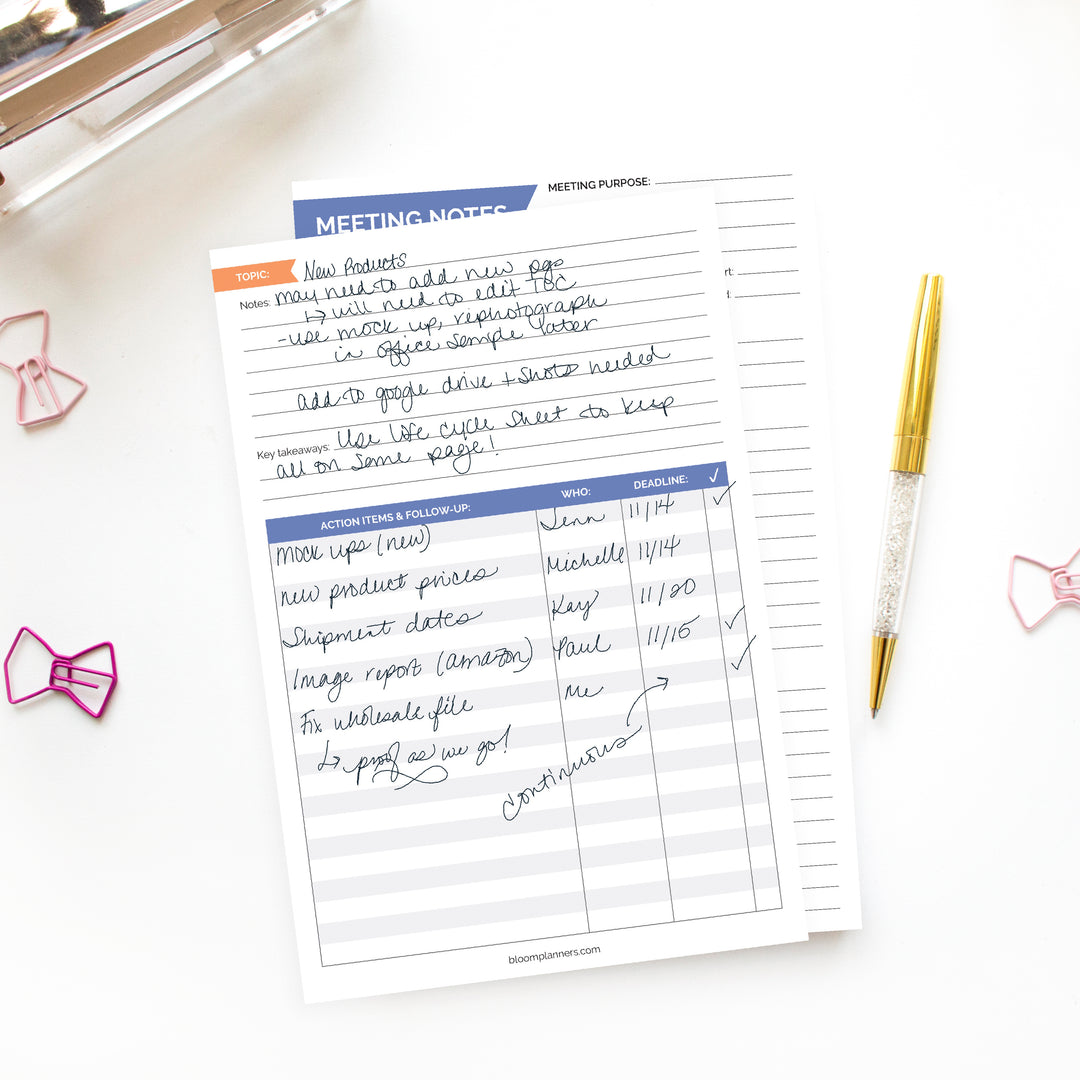 MEETING NOTES
MEETING PURPOSE:
TOPIC: New Products
Notes: may need to add new pgs
↳ will need to edit TOC
- use mock up, rephotograph
in office sample later
add to google drive + shots needed
Key takeaways: Use life cycle sheet to keep
all on same page!
ACTION ITEMS & FOLLOW-UP: WHO: DEADLINE: ✓
Mock ups (new) Jenn 11/14 ✓
new product prices Michelle 11/14
Shipment dates Kay 11/20
Image report (amazon) Paul 11/15 ✓
Fix wholesale file Me ✓
↳ proof as we go!
continuous
bloomplanners.com